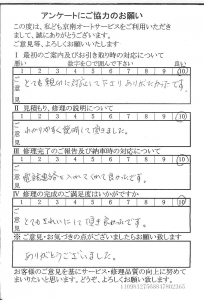 アンケートにご協力のお願い
この度は、私ども京南オートサービスをご利用いただき
まして、誠にありがとうございます。
ご意見等、よろしくお願いいたします
Ⅰ 最初のご案内及びお引き取り時の対応について
悪い 数字を○で囲んで下さい 良い
1 2 3 4 5 6 7 8 9 10
ご意見
とても親切に対応して下さりありがたかったです。
Ⅱ 見積もり、修理の説明について
1 2 3 4 5 6 7 8 9 10
ご意見
わかりやすく説明して頂きました。
Ⅲ 修理完了のご報告及び納車時の対応について
1 2 3 4 5 6 7 8 9 10
ご意見
Ⅳ 修理の完成のご満足度はいかがですか
1 2 3 4 5 6 7 8 9 10
ご意見
とてもきれいにして頂き
※ご意見・お気づきの点がございましたらお願い致します
ありがとうございました。
お客様のご意見を基にサービス・修理品質の向上に努めて
まいりたいと思います。どうぞ、よろしくお願い致します。